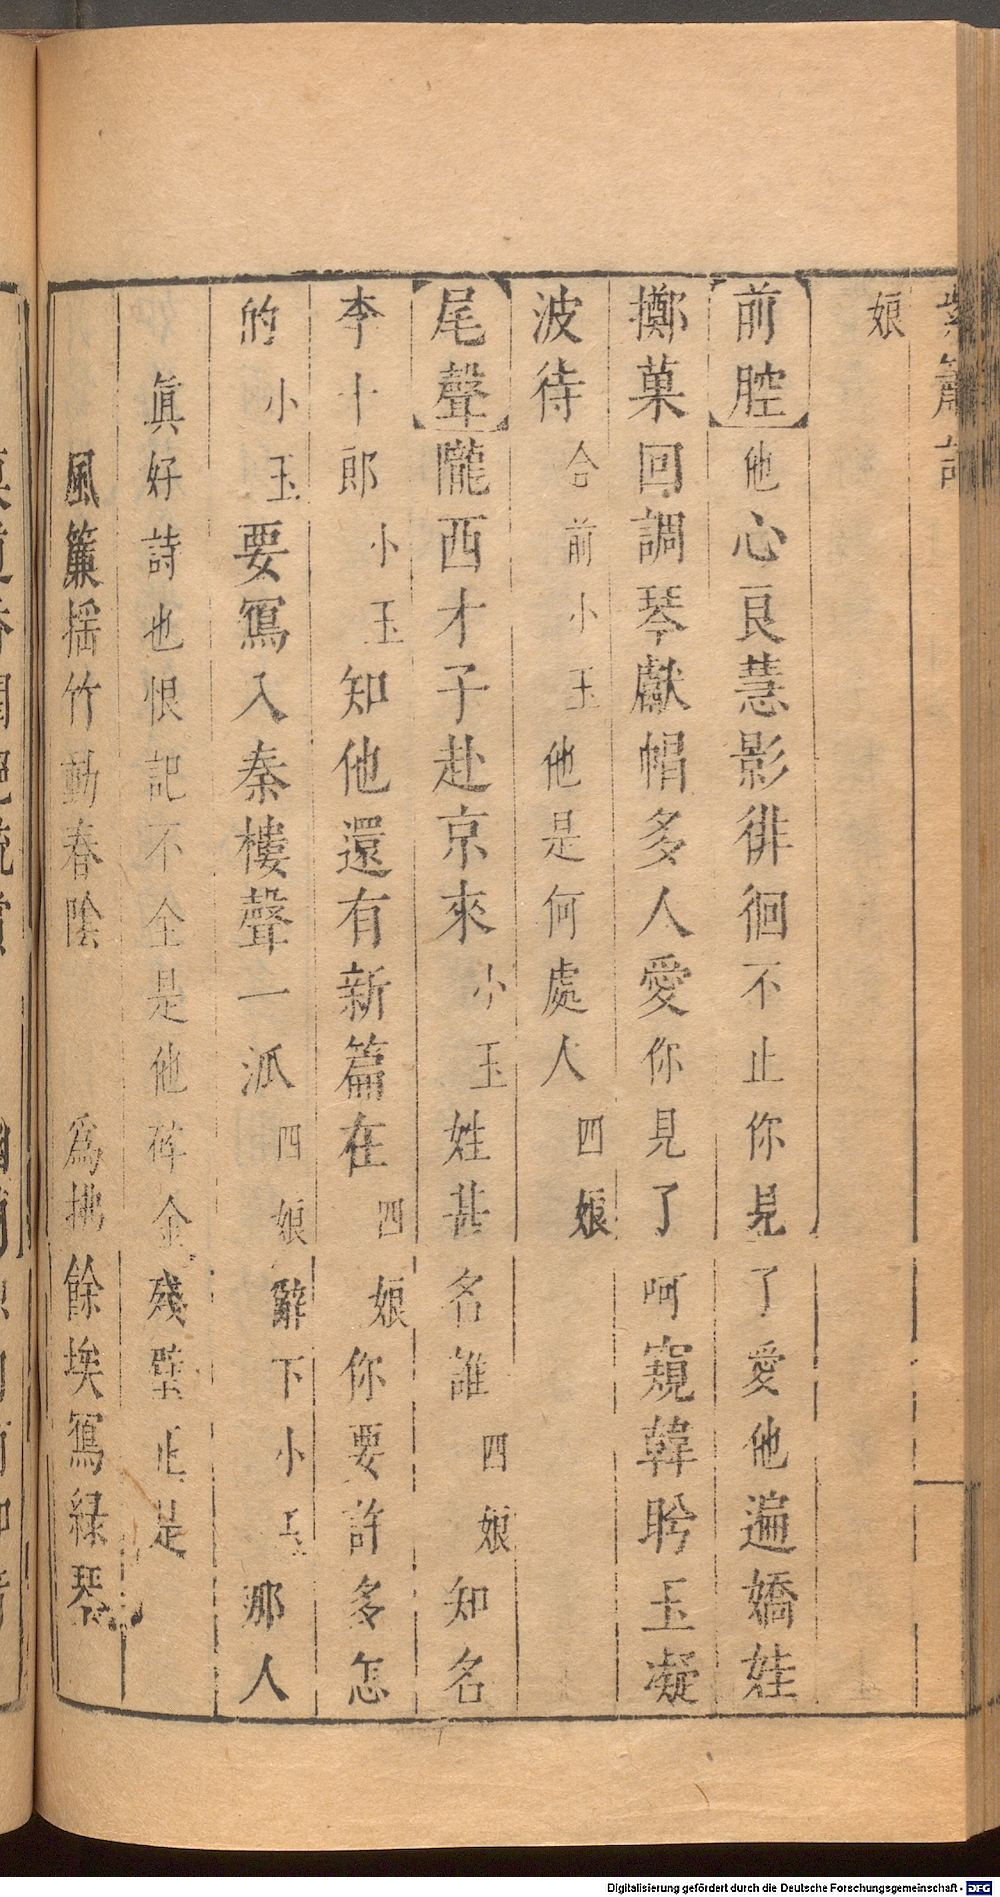 紫簫記
娘
【前腔】他心良慧影徘徊不止你見了愛他遍嬌娃
擲菓回調琴獻帽多人愛你見了呵窺韓盻玉凝
波待合前小玉他是何處人四娘
【尾聲】隴西才子赴京來小玉姓甚名誰四娘知名
李十郎小玉知他還有新篇在四娘你要許多怎
的小玉要寫入秦樓聲一派四娘辭下小玉那人
眞好詩也恨記不全是他碎金殘璧正是
風簾揺竹動春陰 爲拂餘埃寫綠琴
Digitalisierung gefördert durch die Deutsche Forschungsgemeinschaft - DFG